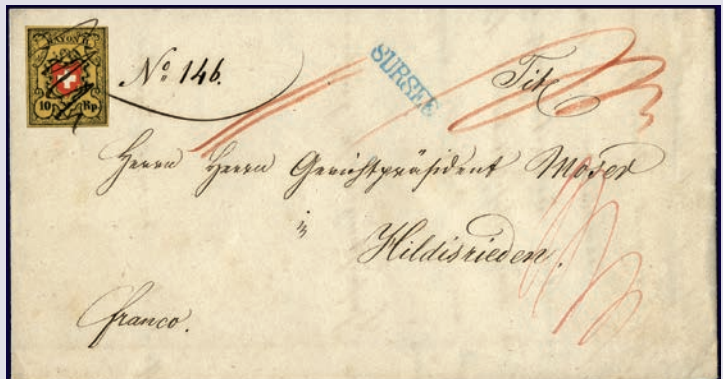 RAYON II.
10 Rp
No 146.
SURSEE
Tit
Herrn Herrn Gerichtpräsident Moser
in
Hildisrieden.
franco.